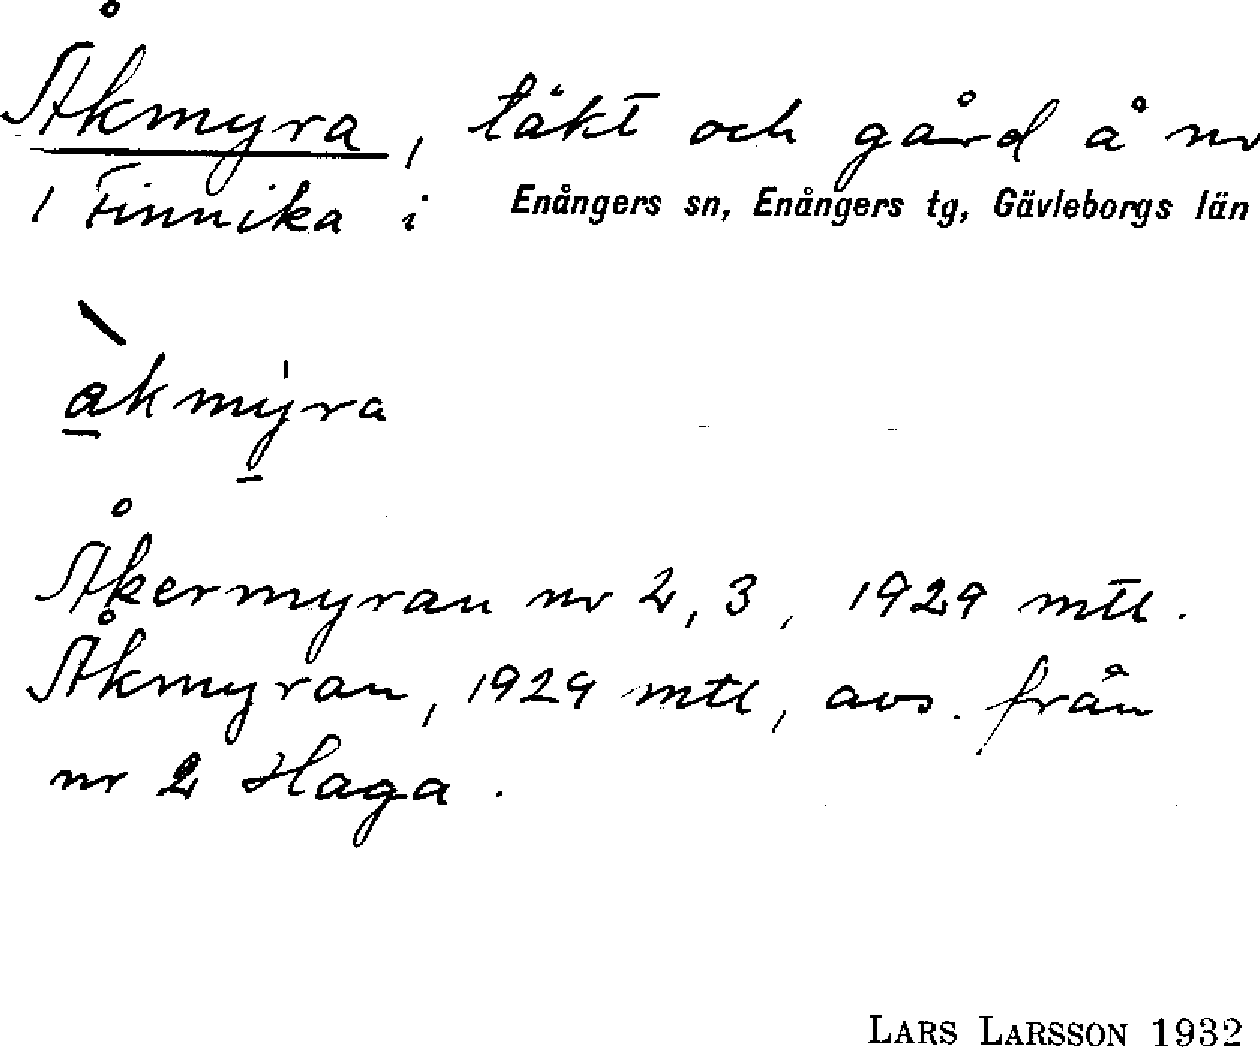 Åkmyra, täkt och gård å nr
1 Finnika i Enångers sn, Enångers tg, Gävleborgs län
àkmýra
Åkermyran nr 2, 3, 1929 mtl.
Åkmyran, 1929 mtl, avs. från
nr 2 Haga.
LARS LARSSON 1932